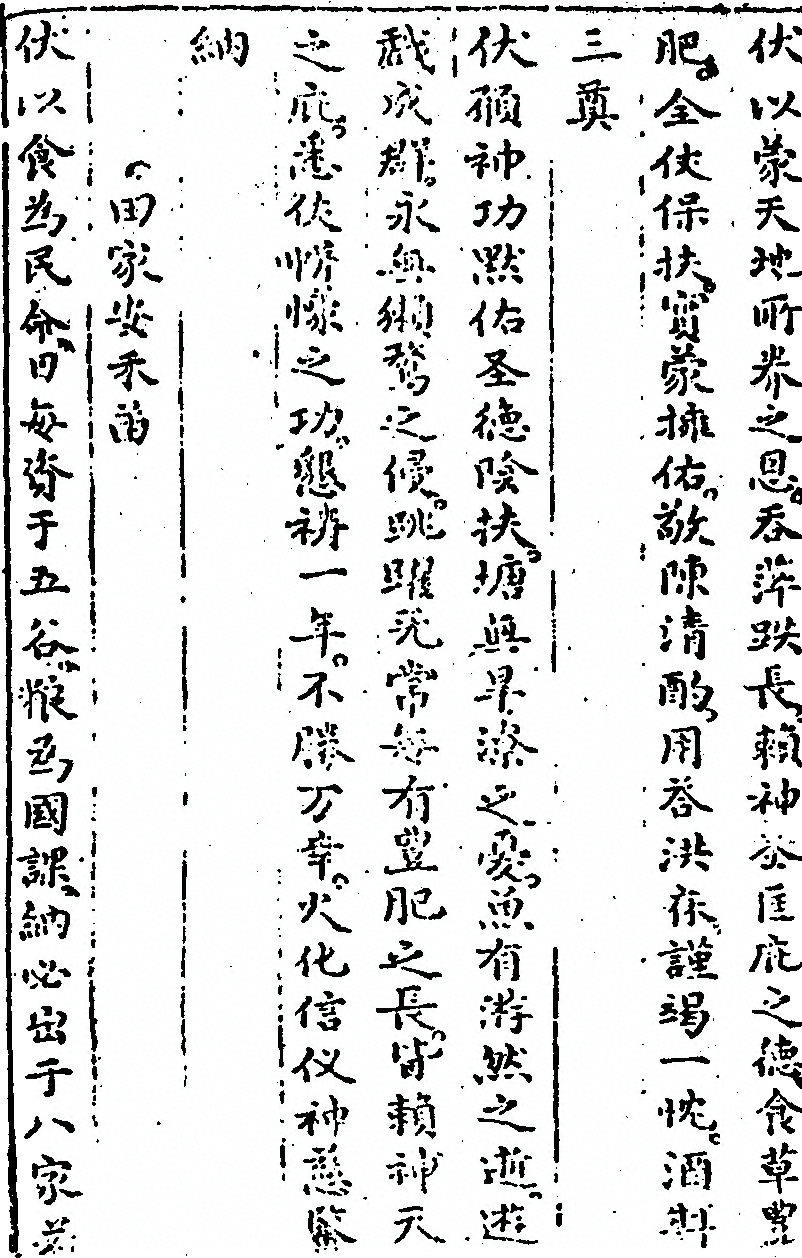 伏以蒙天地所养之恩吞萍跌長賴神圣匡庇之德食草豐
肥全仗保扶實蒙擁佑敬陳清酌用答洪庥謹竭一忱酒斟
三奠
伏願神功默佑圣德陰扶塘無旱潦之憂魚有游然之逝遊
戲成群永無獺鶩之侵跳躍兆常每有豐肥之長皆賴神天
之庇悉仗帡幪之功懇祈一年不勝万幸火化信仪神慈鑒
納
田家安禾苗
伏以食為民命日每資于五谷粮為國課納必出于八家